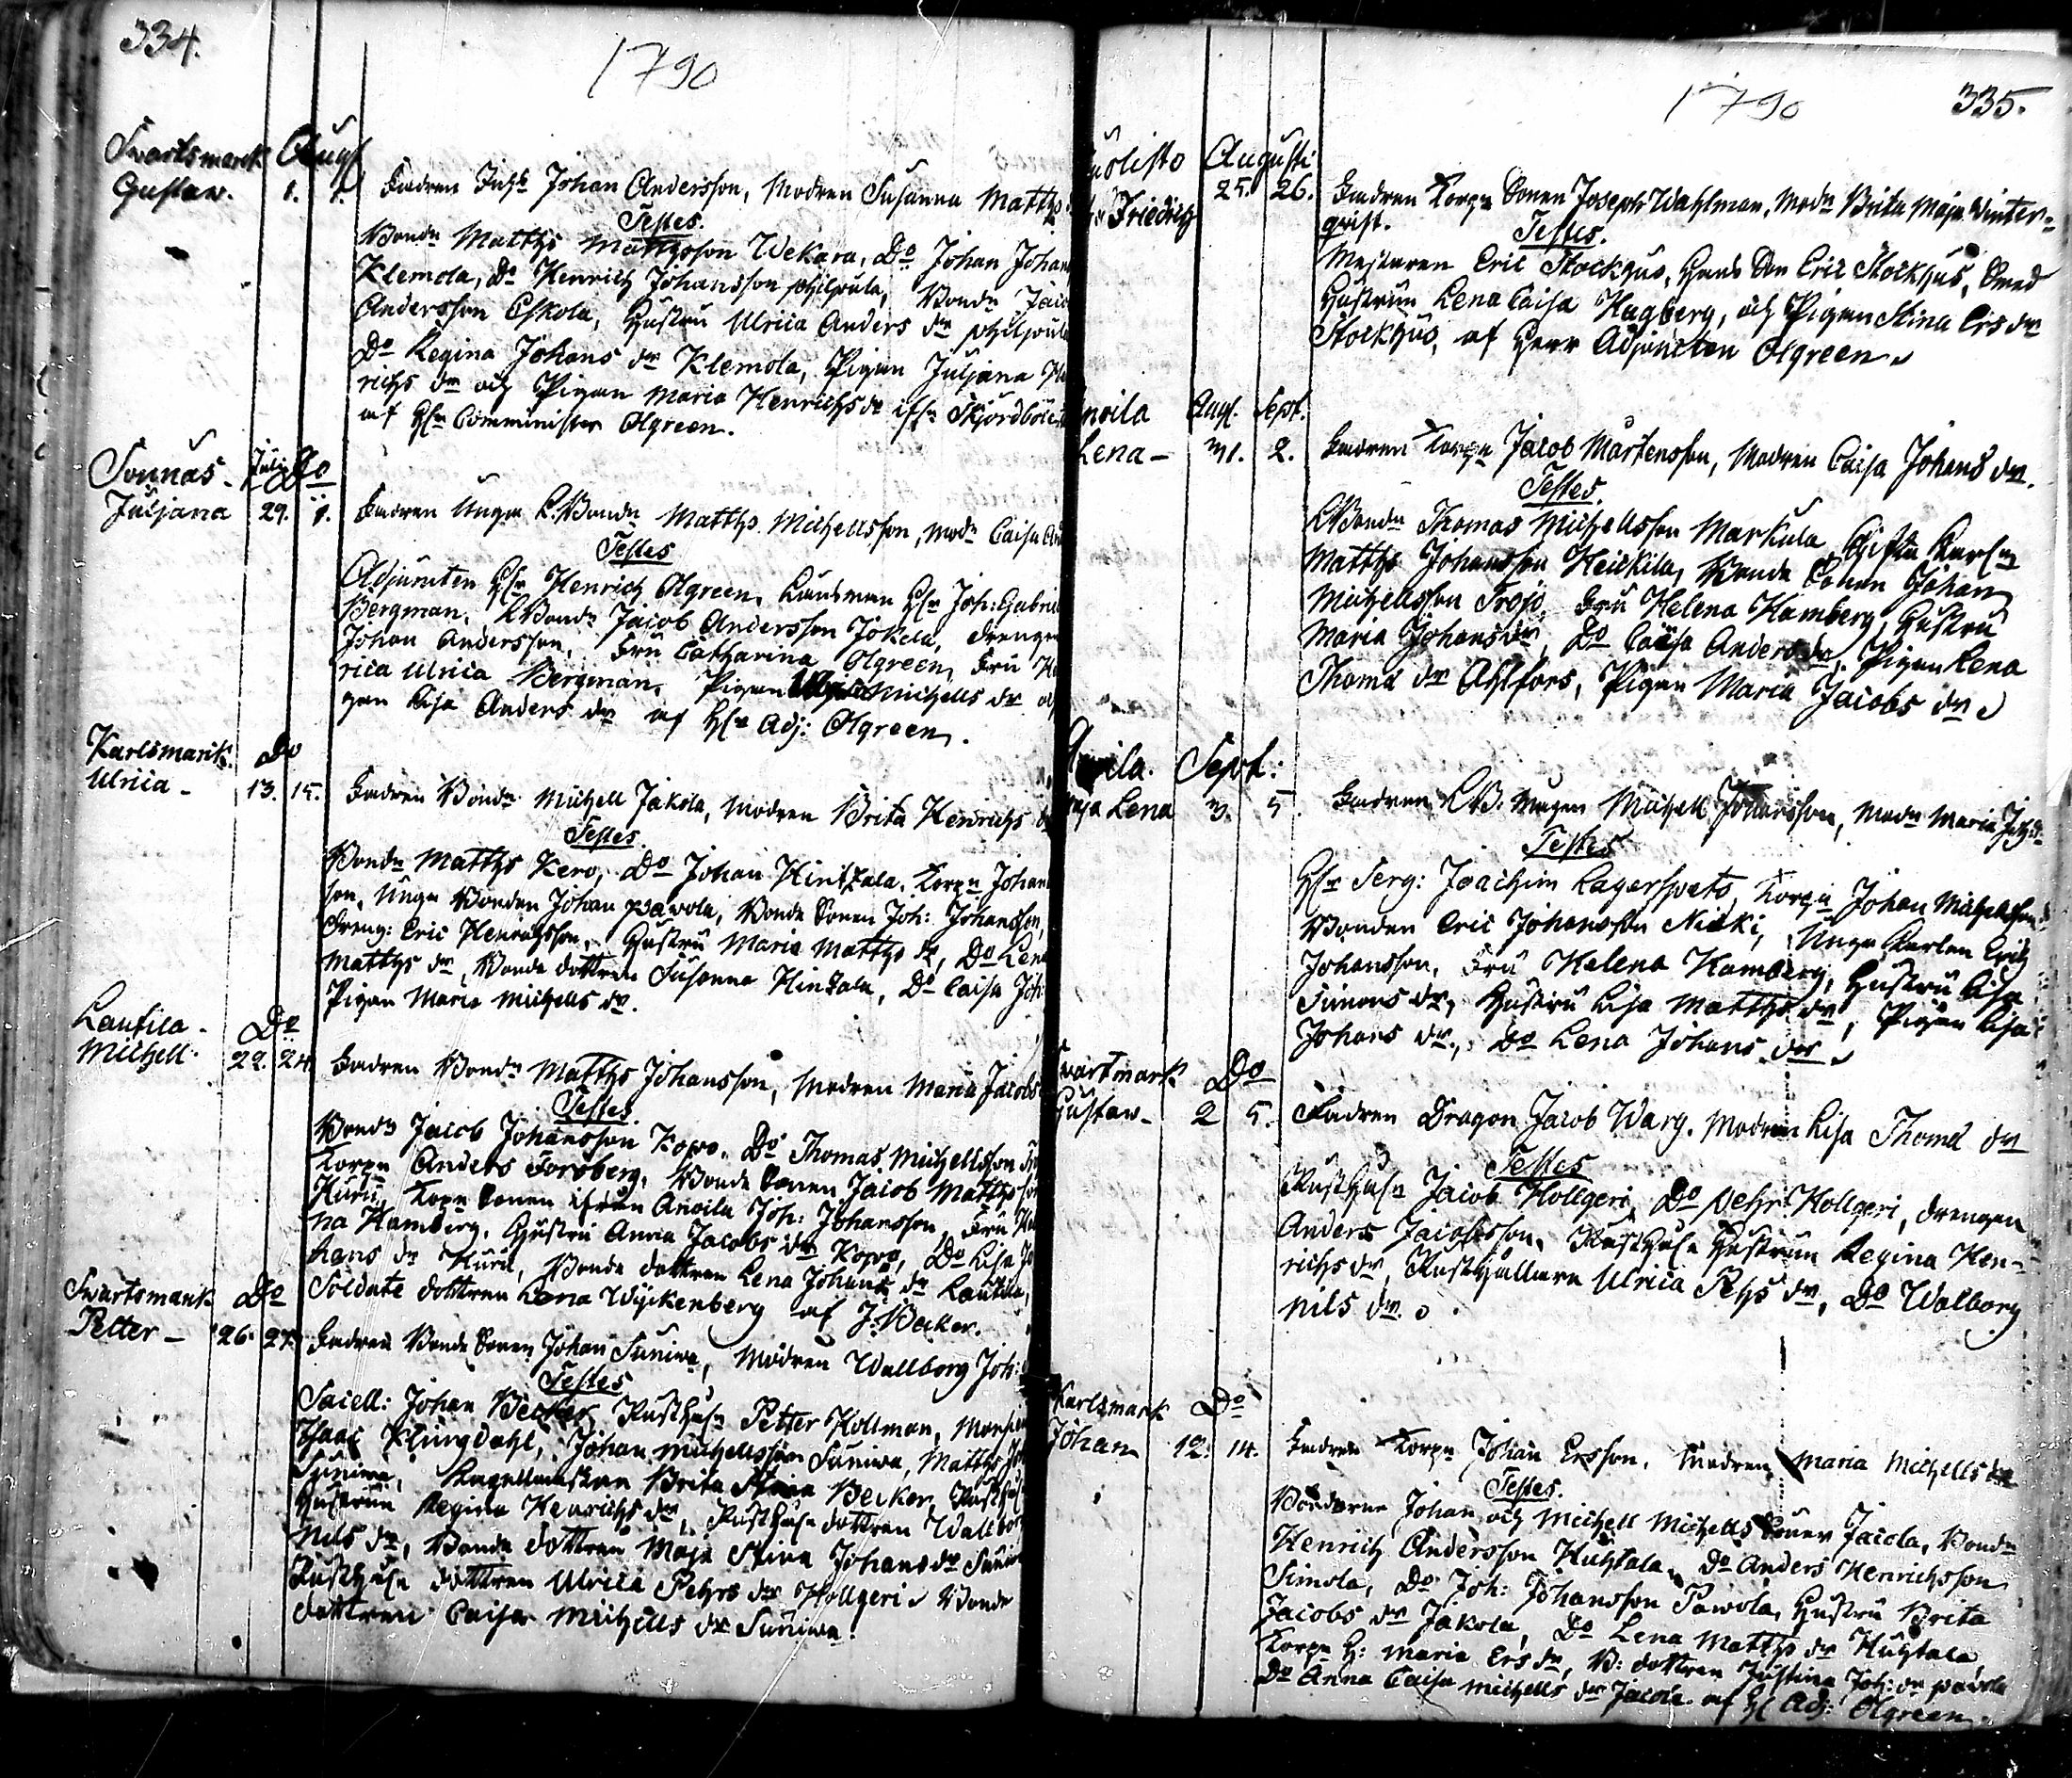 334.
1790
Swartsmarck August
Gustaw. 1. 1. Fadren Inhs Johan Andersson, Modren Susanna Matths
Testes.
Bondn Matths Mattsson Wekara, Do Johan Johan
Klemola, Do Henrich Johansson philpula, Bondn Jaco
Andersson Eskola, Hustru Ulrica Anders dr philpula
Do Regina Johans dr Klemola, Pigan Juljana Hen
richs dr och Pigan Maria Henrichs dr ifrn Skjördböle
af Hr Comminister Olgreen.
Sonnäs - Julii Do
Juljana 29. 1. Fadren Unga L. Bondn Matths Michellsson, Modn Caisa And
Testes
Adjuncten Hr Henrich Olgreen, Länsman Hr Joh: Gabriel
Bergman, LBondn Jacob Andersson Jokela, drengen
Johan Andersson, Fru Catharina Olgreen, Fru He
rica Ulrica Bergman, Pigan Michells dr och
gan Lisa Anders dr af Hr Adj: Olgreen.
Karlsmark. Do
Ulrica - 13. 15. Fadren Bondn Michell Jakola, Modren Brita Henrichs dr
Testes
Bondn Matths Kero, Do Johan Hintzala, Korpn Johan
son, Unga Bonden Johan pavola, Bonde Sonen Joh: Johansson,
dreng: Eric Henrichsson, Hustru Maria Matths dr, Do Lena
Matths dr, Bonde dottren Susanna Hintzala, Do Caisa Joh:
Pigan Maria Michells dr.
Lautila - Do
Michell. 22. 24. Fadren Bondn Matths Johansson, Modren Maria Jacobs
Testes.
Bondn Jacob Johansson Kopo, Do Thomas Michellsson
Korpn Anders Forsberg, Bonde Sonen Jacob Matthsson
Huru, Korpn Sonen ifrån Anvila Joh: Johansson, Fru He
na Hamberg, Hustru Anna Jacobs dr Kopo, Do Lisa Jo
hans dr Huru, Bonde dottren Lena Johans dr Lautila,
Soldate dottren Lena Wijckenberg af J: Becker.
Swartsmark Do
Petter - 26 27. Fadren Bonde Sonen Johan Suniwa, Modren Wallborg Joh:
Testes
Sacell: Johan Becker, Rusthåln Petter Kollman, Monsieur
Isaac Klingdahl, Johan Michellsson Suniwa, Matths Joh
Suniwa, Kapellanskan Brita Stina Becker, Rusthål
Hustrun Regina Henrichs dr, Rusthåln dottren Wallbor
Nils dr, Bonde dottren Maja Stina Johans dr Suniwa
Rusthåln dottren Ulrica Pehrs dr Hollgeri. Bonde
dottren Caisa Michells dr Suniwa.
1790
335.
Augusti
Friedrich 25. 26. Fadren Korpn Sonen Joseph Wahlman, Modn Brita Maja Winter-
qvist.
Testes.
Mestaren Eric Stockhus, Hans Son Eric Stockhus, Smed
Hustrun Lena Caisa Hagberg, och Pigan Stina Ers dr
Stockhus, af Herr Adjuncten Olgreen
Anvila Aug. Sept.
Lena - 31. 2. Fadren Korpn Jacob Mårtensson, Modren Caisa Johans dr.
Testes.
LBondn Thomas Michellsson Markula, Gifta Karln
Matths Johansson Heickila, Bonde Sonen Johan
Michellsson Trojo, Fru Helena Hamberg, Hustru
Maria Johans dr, Do Caisa Anders dr, Pigan Lena
Thoma dr Ahlfors, Pigan Maria Jacobs dr
Anvila. Sept:
Maja Lena 3. 5. Fadren LB. Magen Michell Johansson, Modn Maria Joh:d:
Testes
Hr Serg: Joachim Lagerspets, Korpn Johan Michellsson
Bonden Eric Johansson Nicki, Unga Karlen Erich
Johansson, Fru Helena Hamberg, Hustru Lisa
Simons dr, Hustru Lisa Matths dr, Pigan Lisa
Johans dr, Do Lena Johans dr
Swartmark Do
Gustaw - 2 5. Fadren Dragon Jacob Warg. Modren Lisa Thoma dr
Testes
Rusthåln Jacob Hollgeri, Do Pehr Hollgeri, drengen
Anders Jacobsson, Rusthåln Hustrun Regina Hen-
richs dr, Rusthållare Ulrica Pehs dr, Do Walborg
Nils dr.
Karlsmark Do
Johan 12. 14. Fadren Korpn Johan Ersson, Modren Maria Michells dr
Testes.
Bönderne Johan och Michell Michells Söner Jacola, Bondn
Henrich Andersson Huhtala, Do Anders Henrichsson
Simola, Do Joh: Johansson Pawola, Hustru Brita
Jacobs dr Jakola, Do Lena Matths dr Huhtala
Korpn H: Maria Ers dr, B: dottren Justina Joh: dr pavola
Do Anna Caisa Michells dr Jacola af H Adj: Olgreen.